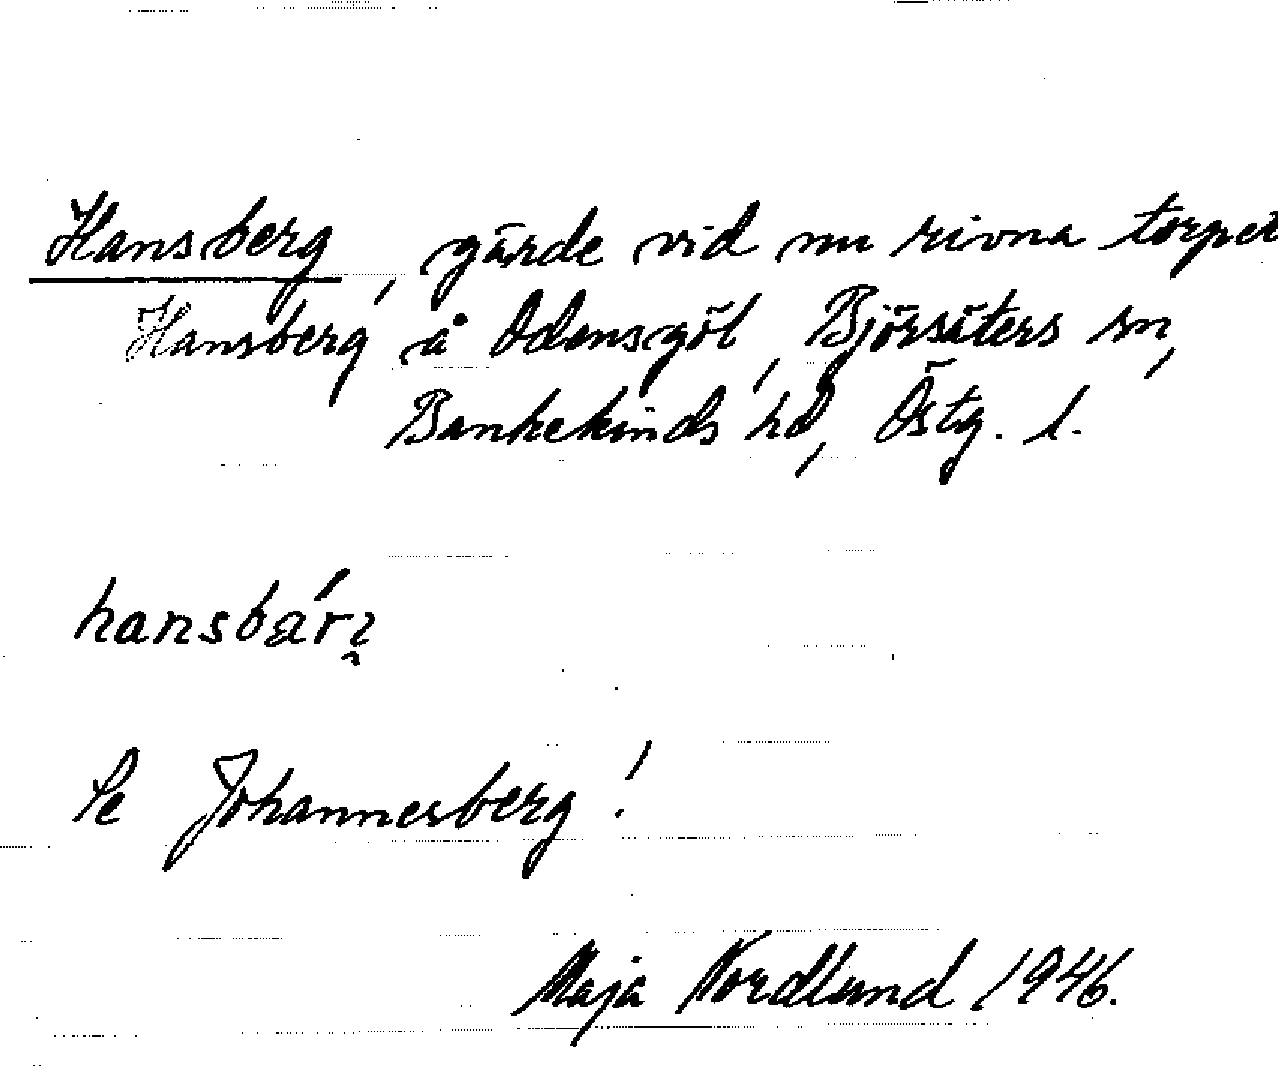 Hansberg, gärde vid nu rivna torpet
Hansberg å Odensgöl, Björsäters sn,
Bankekinds hd, Östg. l.
Se Johannesberg!
Maja Nordlund 1946.